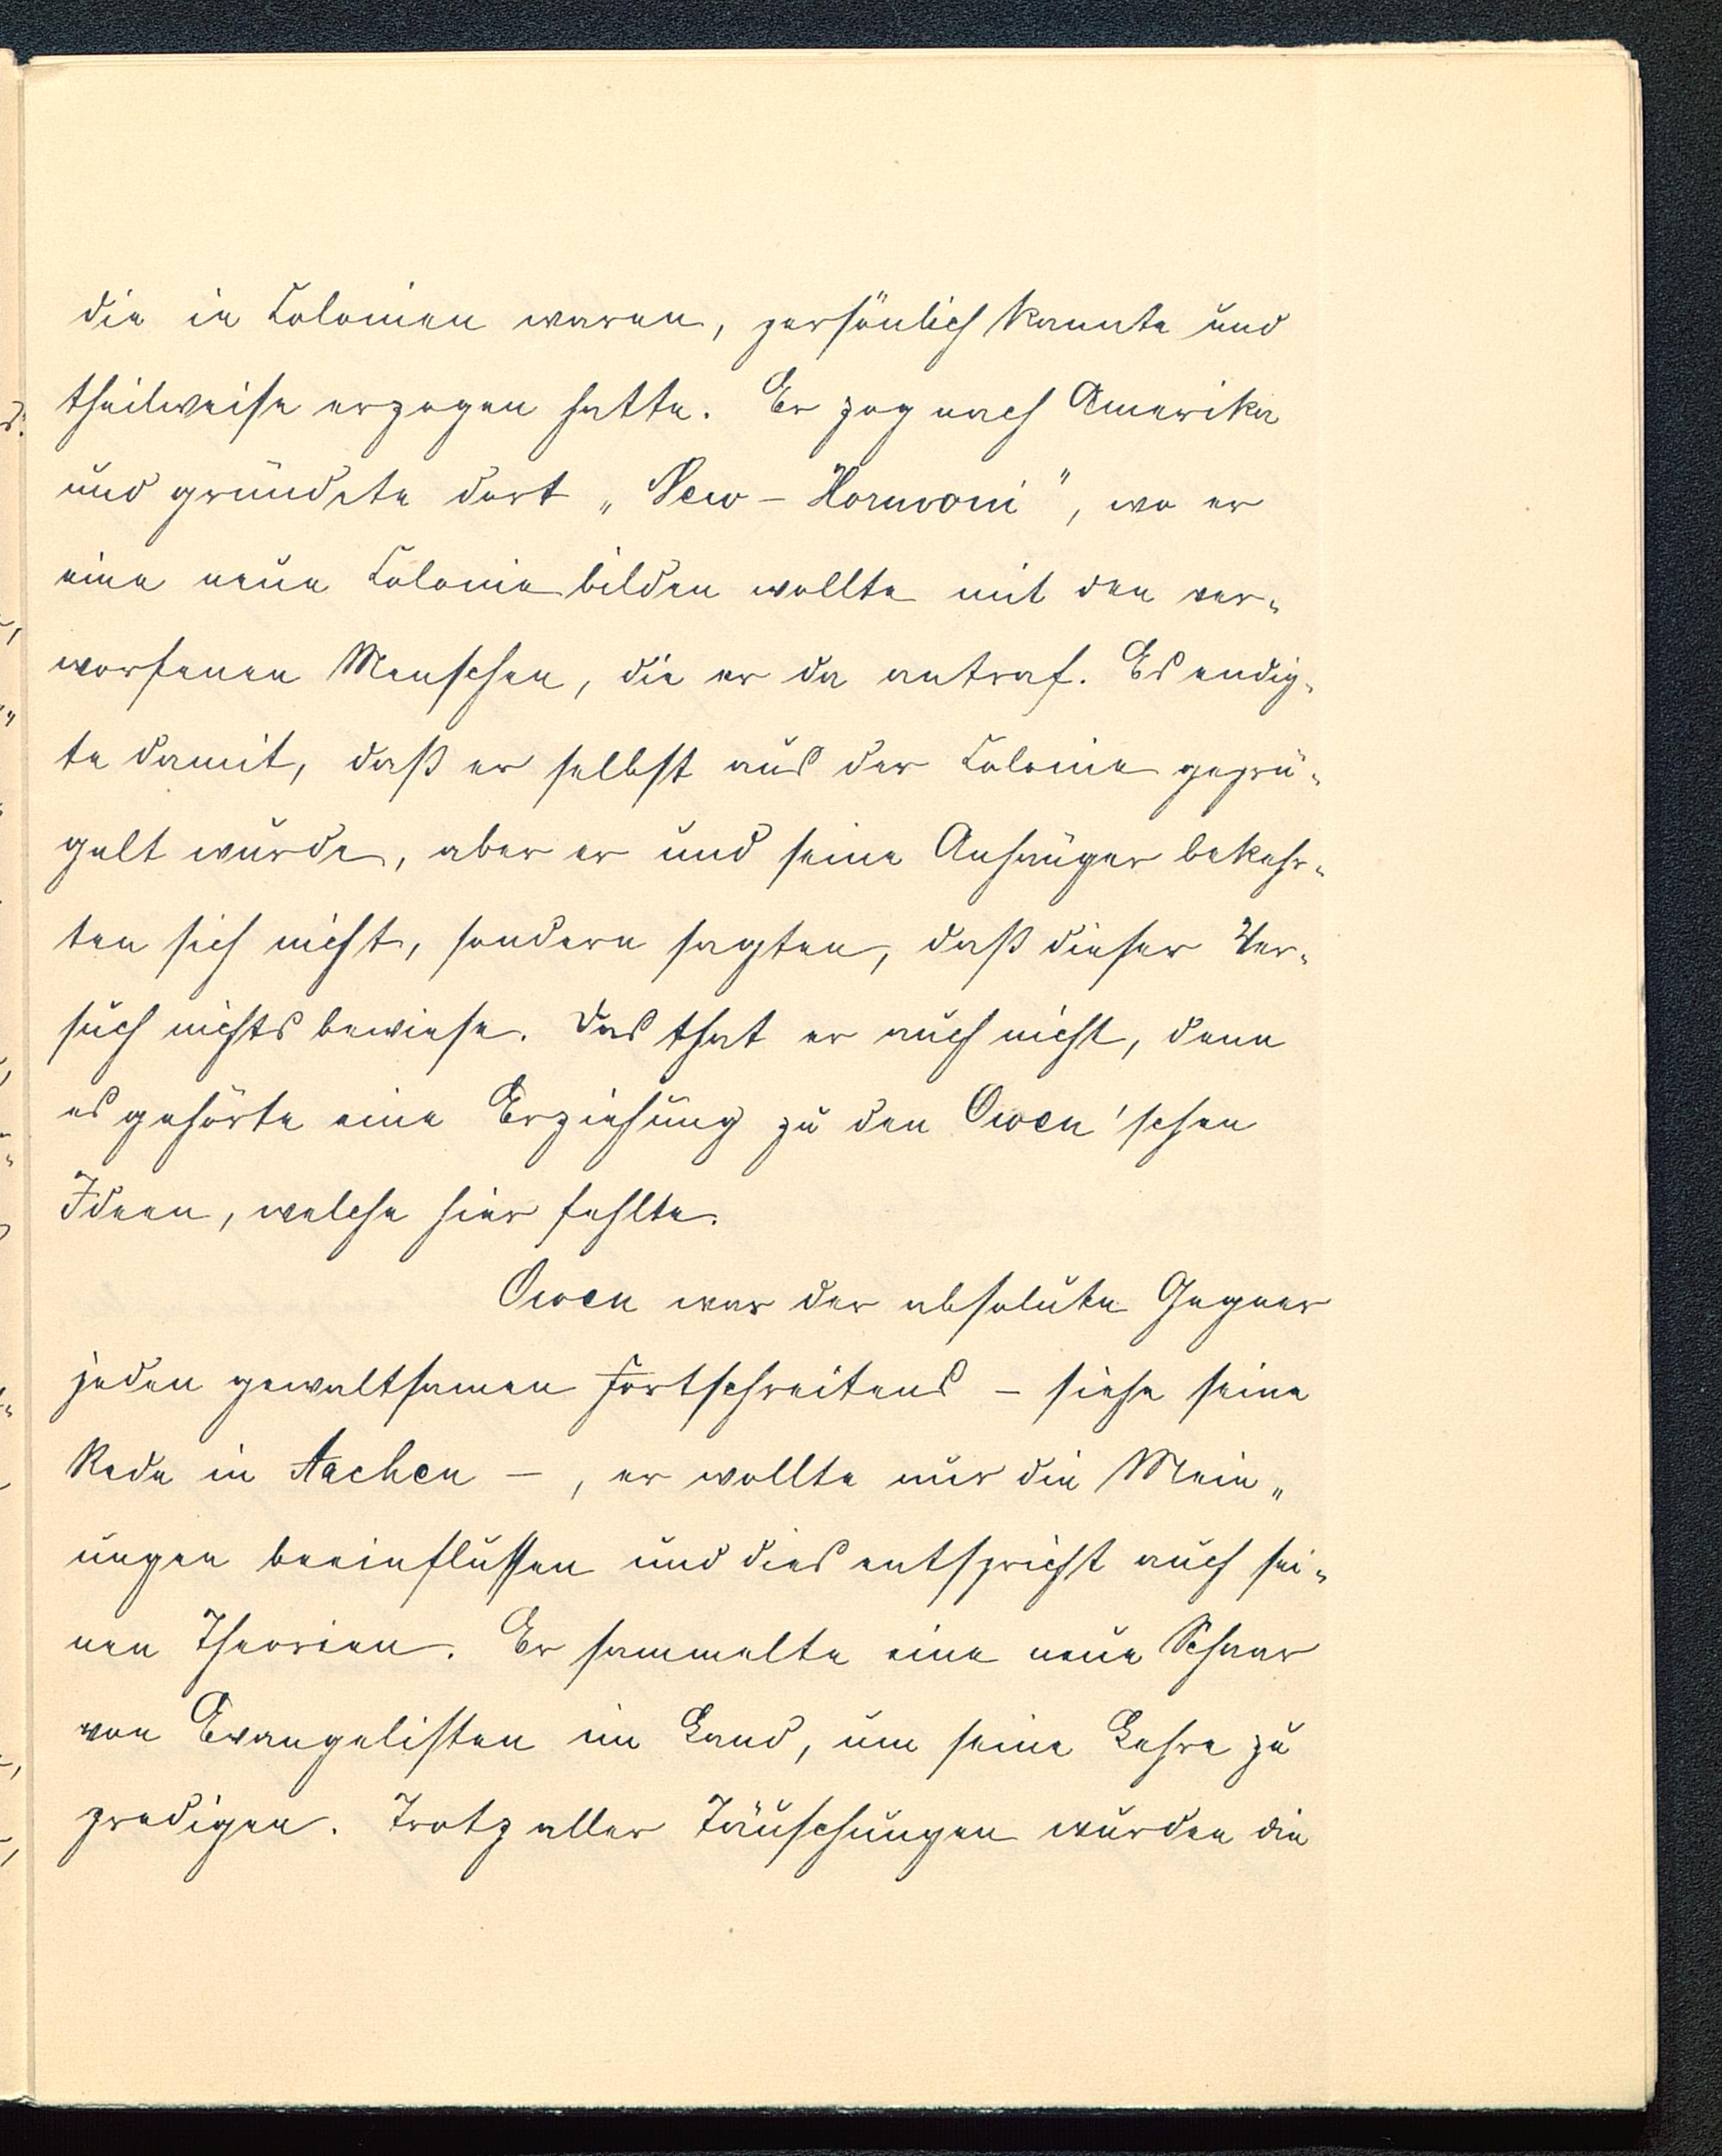 die in Colonien waren, persönlich kannte und
theilweise erzogen hatte. Er zog nach Amerika
und gründete dort „New-Harmoni", wo er
eine neue Colonie bilden wollte mit den ver-
worfenen Menschen, die er da antraf. Es endig-
te damit, daß er selbst aus der Colonie geprü-
gelt wurde, aber er und seine Anhänger bekehr-
ten sich nicht, sondern sagten, daß dieser Ver-
such nichts bewiese. Das that er auch nicht, denn
es gehörte eine Erziehung zu den Owen'schen
Ideen, welche hier fehlte.
Owen war der absolute Gegner
jeden gewaltsamen Fortschreitens – siehe seine
Rede in Aachen –, er wollte nur die Mein-
ungen beeinflussen und dies entspricht auch sei-
nen Theorien. Er sammelte eine neue Schaar
von Evangelisten im Land, um seine Lehre zu
predigen. Trotz aller Täuschungen wurden die